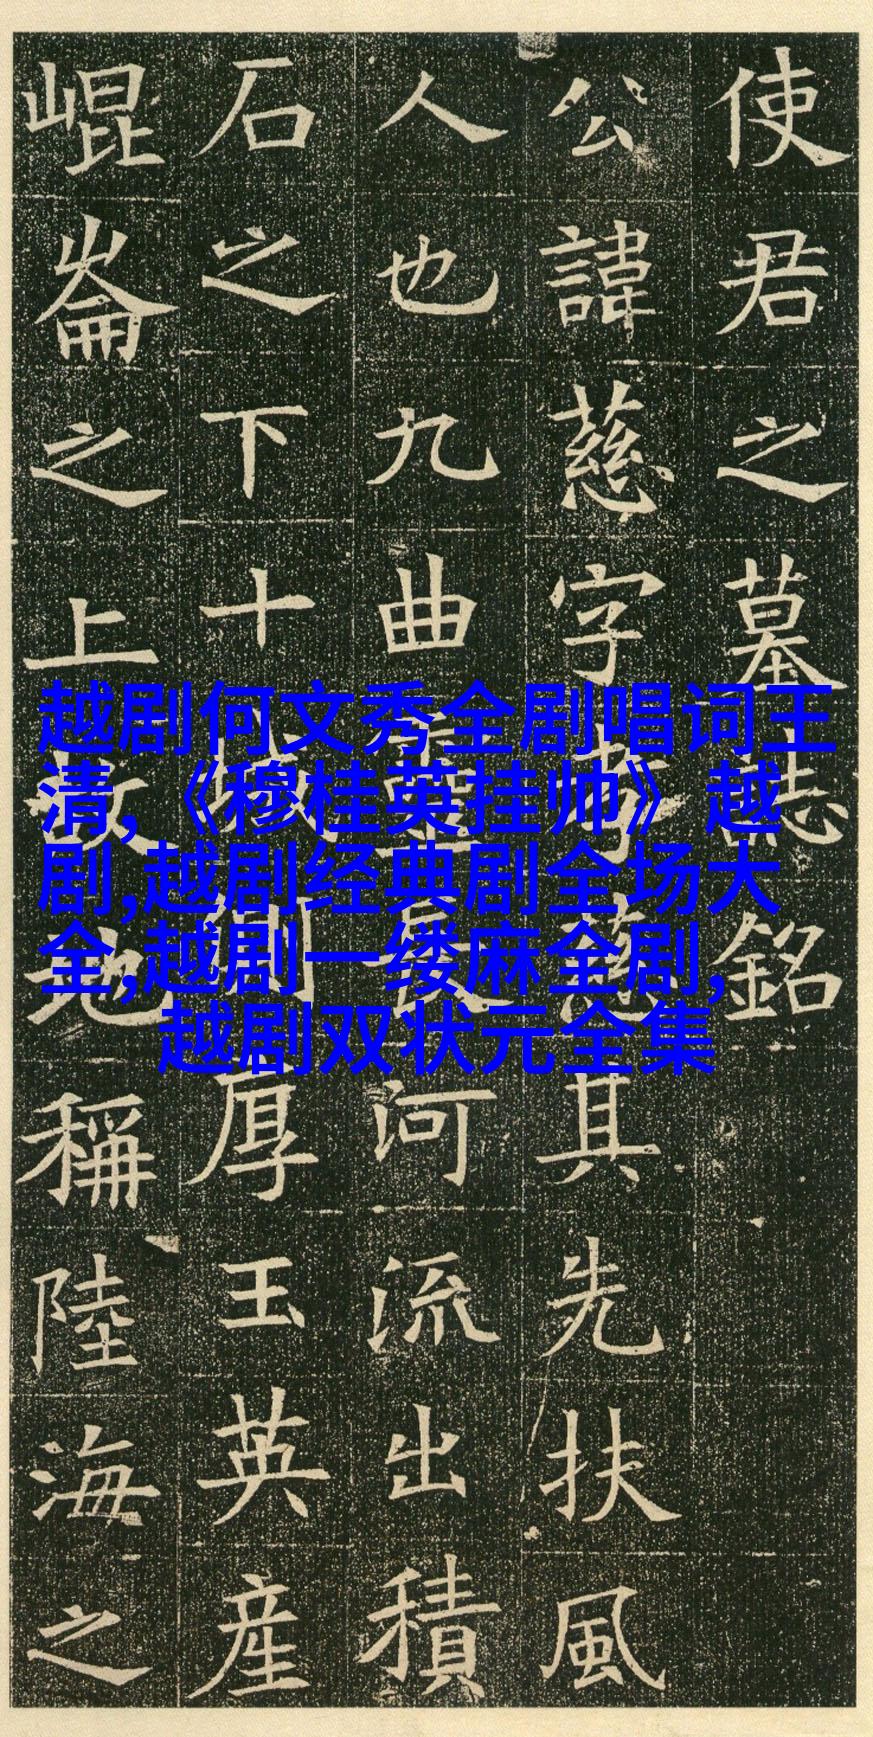 使君之墓誌銘
公諱慈字孝慈其先扶風
人也九曲長河流出積
石之下十厚玉英産
崐崙之上故地稱陸海之
越剧何文秀全剧唱词王
清,《穆桂英挂帅》越
剧,越剧经典剧全场大
全,越剧一缕麻全剧,
越剧双状元全集